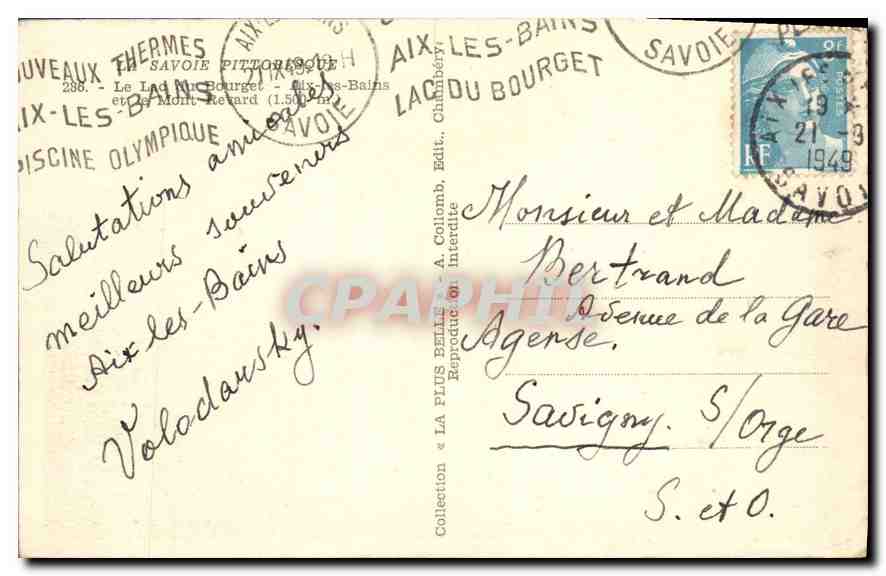 NOUVEAUX THERMES
AIX-LES-BAINS
PISCINE OLYMPIQUE
AIX-LES-BAINS
21 IX 49
SAVOIE
AIX-LES-BAINS
LAC DU BOURGET
SAVOIE
LA SAVOIE PITTORESQUE
286. - Le Lac du Bourget - Aix-les-Bains
et le Mont Revard (1.500 m.)
POSTES
RF
AIX LES
19
21 -9
1949
SAVOIE
Salutations amicales
meilleurs souvenirs
Aix-les-Bains
Volodarsky.
Collection « LA PLUS BELLE » - A. Collomb, Edit., Chambéry
Reproduction interdite
Monsieur et Madame
Bertrand
Avenue de la Gare
Agense.
Savigny S/Orge
S. et O.
CPAPHIL